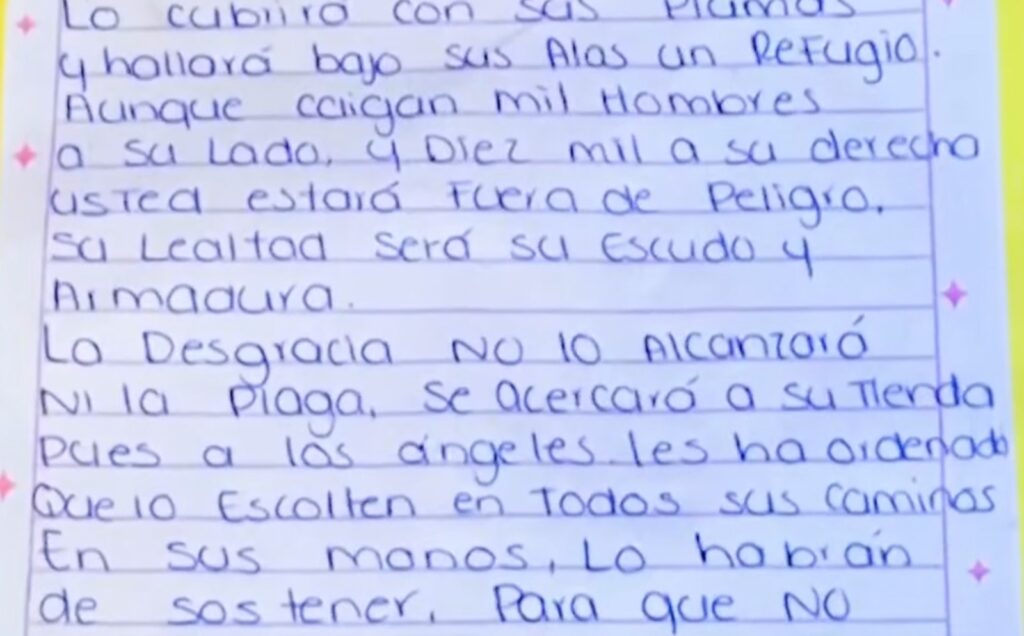 Lo cubrira con sus Plumas
y hallará bajo sus Alas un Refugio.
Aunque caigan mil Hombres
a su Lado, y Diez mil a su derecha
usted estará Fuera de Peligro.
su Lealtad será su Escudo y
Armadura.
La Desgracia NO lo Alcanzará
Ni la plaga, se acercará a su Tienda
pues a los ángeles les ha ordenado
Que lo Escolten en Todos sus caminos
En sus manos, Lo habrán
de sostener, Para que NO